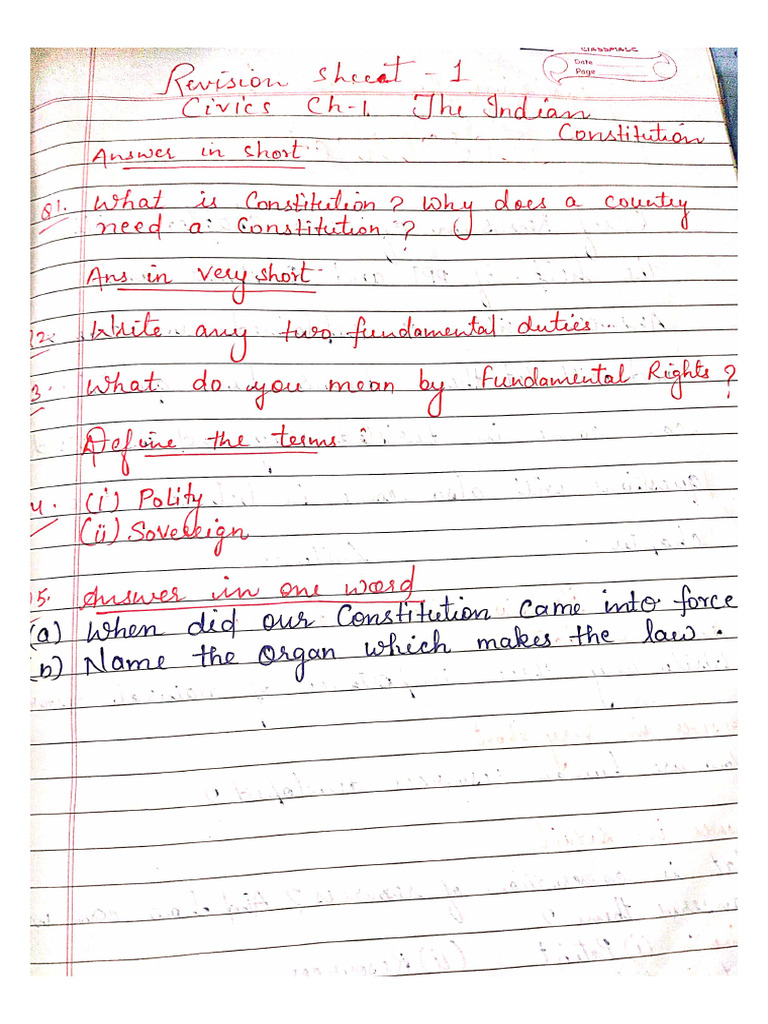 CLASSMATE
Date
Page
Revision sheeat - 1
Civics Ch-1. The Indian
Constitution
Answer in short
Q1. What is Constitution? Why does a country
need a Constitution?
Ans. in very short
2. Write any two fundamental duties
3. What do you mean by Fundamental Rights?
Define the terms :
4. (i) Polity
(ii) Sovereign
5. Answer in one word
(a) When did our Constitution came into force
b) Name the organ which makes the law.